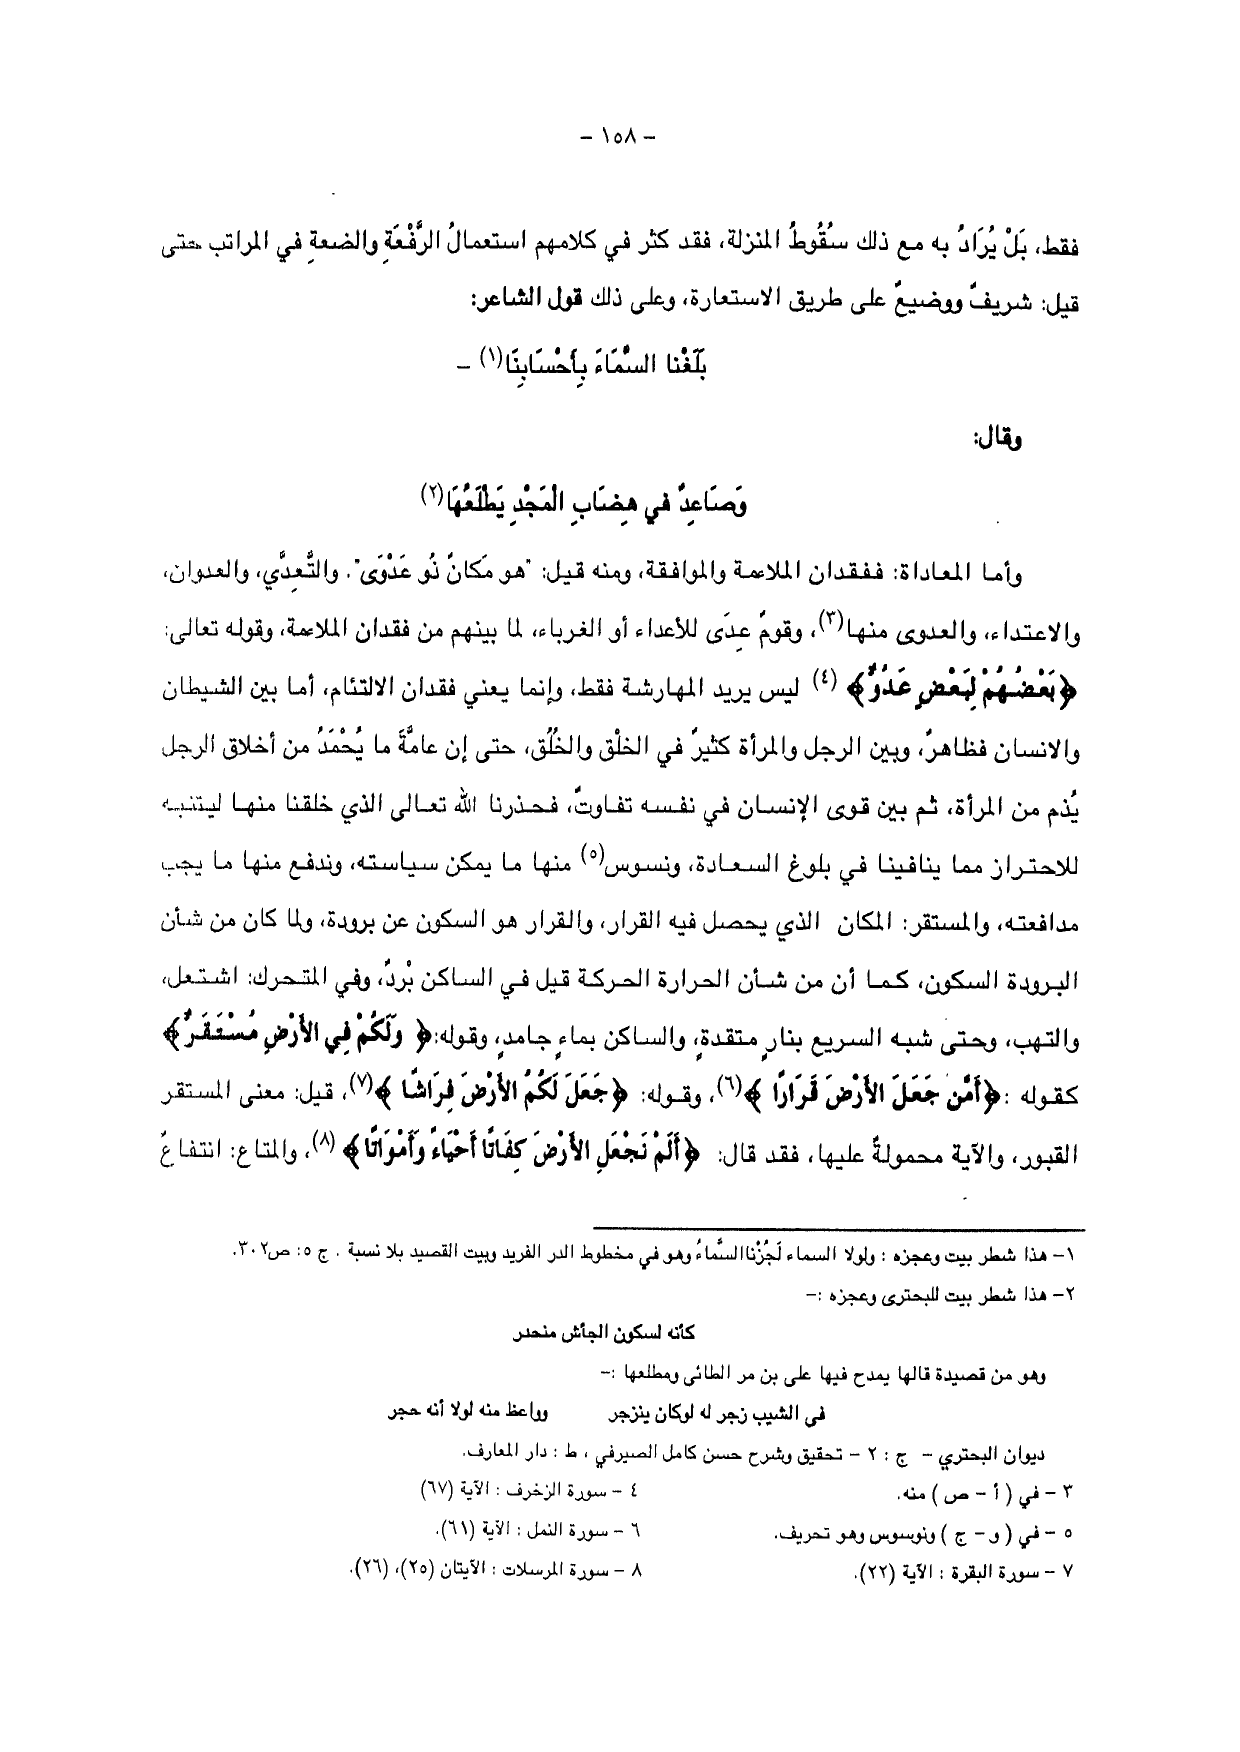 – ١٥٨ –
فقط، بَلْ يُرَادُ به مع ذلك سُقُوطُ المنزلة، فقد كثر في كلامهم استعمالُ الرَّفْعَةِ والضعةِ في المراتب حتى
قيل: شريفٌ ووضيعٌ على طريق الاستعارة، وعلى ذلك قول الشاعر:
بَلَغْنا السَّمَاءَ بِأَحْسَابِنَا(١) –
وقال:
وَصَاعِدٌ في هِضَابِ الْمَجْدِ يَطْلَعُهَا(٢)
وأما المعاداة: ففقدان الملاءمة والموافقة، ومنه قيل: "هو مَكَانٌ ذُو عَدْوَى". والتَّعدِّي، والعدوان،
والاعتداء، والعدوى منها(٣)، وقومٌ عِدَى للأعداء أو الغرباء، لما بينهم من فقدان الملاءمة، وقوله تعالى:
﴿بَعْضُهُمْ لِبَعْضٍ عَدُوٌّ﴾ (٤) ليس يريد المهارشة فقط، وإنما يعني فقدان الالتئام، أما بين الشيطان
والانسان فظاهرٌ، وبين الرجل والمرأة كثيرٌ في الخلْق والخُلُق، حتى إن عامَّةَ ما يُحْمَدُ من أخلاق الرجل
يُذم من المرأة، ثم بين قوى الإنسان في نفسه تفاوتٌ، فحذرنا الله تعالى الذي خلقنا منها ليتنبه
للاحتراز مما ينافينا في بلوغ السعادة، ونسوس(٥) منها ما يمكن سياسته، وندفع منها ما يجب
مدافعته، والمستقر: المكان الذي يحصل فيه القرار، والقرار هو السكون عن برودة، ولما كان من شأن
البرودة السكون، كما أن من شأن الحرارة الحركة قيل في الساكن بْردٌ، وفي المتحرك: اشتعل،
والتهب، وحتى شبه السريع بنارٍ متقدةٍ، والساكن بماءٍ جامدٍ، وقوله:﴿ وَلَكُمْ فِي الأَرْضِ مُسْتَقَرٌّ﴾
كقوله :﴿أَمَّن جَعَلَ الأَرْضَ قَرَارًا ﴾(٦)، وقوله: ﴿جَعَلَ لَكُمُ الأَرْضَ فِرَاشًا ﴾(٧)، قيل: معنى المستقر
القبور، والآية محمولةٌ عليها، فقد قال: ﴿أَلَمْ نَجْعَلِ الأَرْضَ كِفَاتًا أَحْيَاءً وَأَمْوَاتًا﴾ (٨)، والمتاع: انتفاعٌ
١– هذا شطر بيت وعجزه : ولولا السماء لَجُزْنا السَّماءُ وهو في مخطوط الدر الفريد وبيت القصيد بلا نسبة . ج ٥: ص٣٠٢.
٢– هذا شطر بيت للبحترى وعجزه :–
كأنه لسكون الجأش منحدر
وهو من قصيدة قالها يمدح فيها على بن مر الطائى ومطلعها :–
في الشيب زجر له لوكان ينزجر وواعظ منه لولا أنه حجر
ديوان البحتري – ج : ٢ – تحقيق وشرح حسن كامل الصيرفي ، ط : دار المعارف.
٣ – في ( أ – ص ) منه. ٤ – سورة الزخرف : الآية (٦٧)
٥ – في ( و – ج ) ونوسوس وهو تحريف. ٦ – سورة النمل : الآية (٦١).
٧ – سورة البقرة : الآية (٢٢). ٨ – سورة المرسلات : الآيتان (٢٥)، (٢٦).